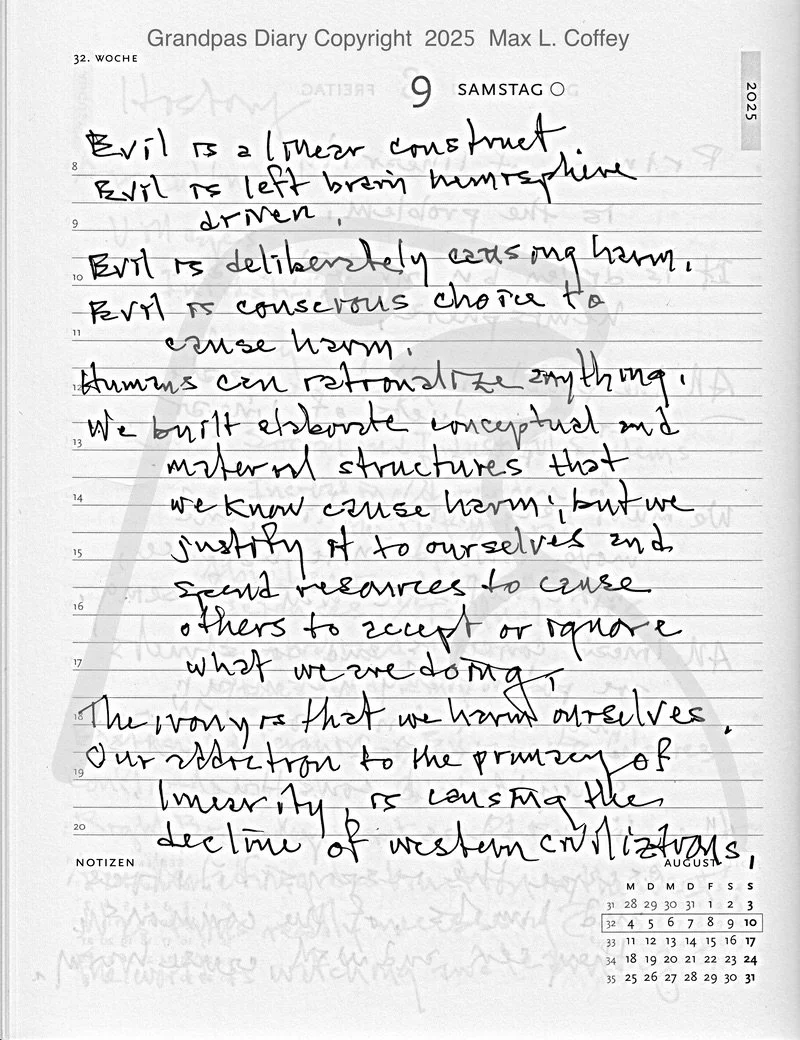 Grandpas Diary Copyright 2025 Max L. Coffey
32. WOCHE
9 SAMSTAG
2025
Evil is a linear construct.
8
Evil is left brain hemisphire
driven.
9
Evil is deliberately causing harm.
10
Evil is conscious choice to
11
cause harm.
12
Humans can rationalize anything.
We built elaborate conceptual and
13
material structures that
14
we know cause harm, but we
15
justify it to ourselves and
spend resources to cause
16
others to accept or ignore
17
what we are doing.
18
The irony is that we harm ourselves.
Our addiction to the primacy of
19
linearity, is causing the
20
decline of western civiliztions.
NOTIZEN
AUGUST
M D M D F S S
31 28 29 30 31 1 2 3
32 4 5 6 7 8 9 10
33 11 12 13 14 15 16 17
34 18 19 20 21 22 23 24
35 25 26 27 28 29 30 31